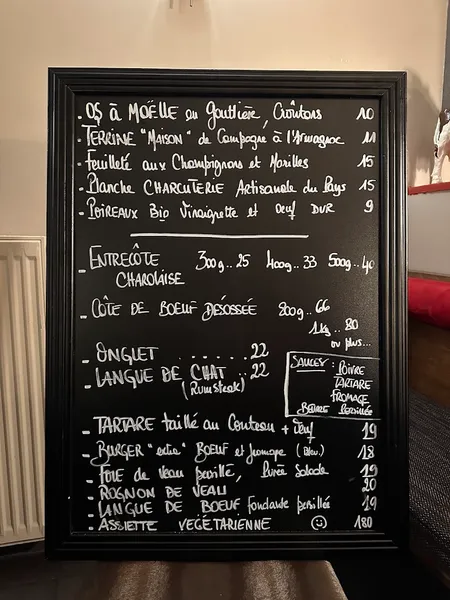 - OS à MOËLLE en Gouttière, Croûtons 10
- TERRINE "MAISON" de Campagne à l'Armagnac 11
- Feuilleté aux Champignons et Morilles 15
- Planche CHARCUTERIE Artisanale du Pays 15
- POIREAUX Bio Vinaigrette et Oeuf DUR 9
- ENTRECÔTE 300g..25 400g..33 500g..40
CHAROLAISE
- CÔTE DE BOEUF DÉSOSSÉE 800g..66
1kg..80
ou plus...
- ONGLET ....... 22
- LANGUE DE CHAT .. 22
(Rumsteak)
SAUCES : POIVRE
TARTARE
FROMAGE
BEURRE PERSILLÉE
- TARTARE taillé au Couteau + Oeuf 19
- BURGER "extra" BOEUF et fromage (Bleu.) 18
- FOIE de Veau persillé, Purée Salade 19
- ROGNON DE VEAU 20
- LANGUE DE BOEUF fondante persillée 19
- ASSIETTE VÉGÉTARIENNE ☺ 180